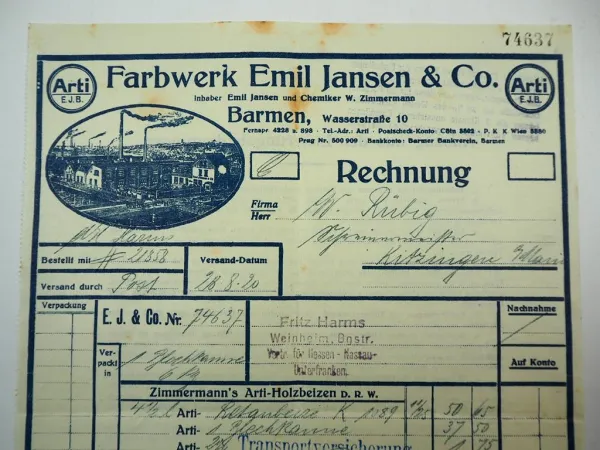 74637
Arti
E.J.B.
Farbwerk Emil Jansen & Co.
Arti
E.J.B.
Inhaber Emil Jansen und Chemiker W. Zimmermann
Barmen, Wasserstraße 10
Fernspr 4228 u. 898 · Tel.-Adr.: Arti · Postscheck-Konto: Cöln
Prag Nr. 500 909 · Bankkonto: Barmer Bankverein, Barmen
Rechnung
Firma
Herr
W. Rübig
Schreinermeister
Kitzingen
Bestellt mit
Versand-Datum
Versand durch Post
28.8.20
Verpackung
E. J. & Co. Nr. 74637
Nachnahme
Fritz Harms
Weinheim, Bgstr.
Vertr. für Hessen-Nassau-
Unterfranken.
Ver-
packt
in
1 Blechkanne
Auf Konto
Zimmermann's Arti-Holzbeizen D. R. W.
Arti-
50 65
Arti- 1 Blechkanne 37 50
Arti-
Transportversicherung 1 75